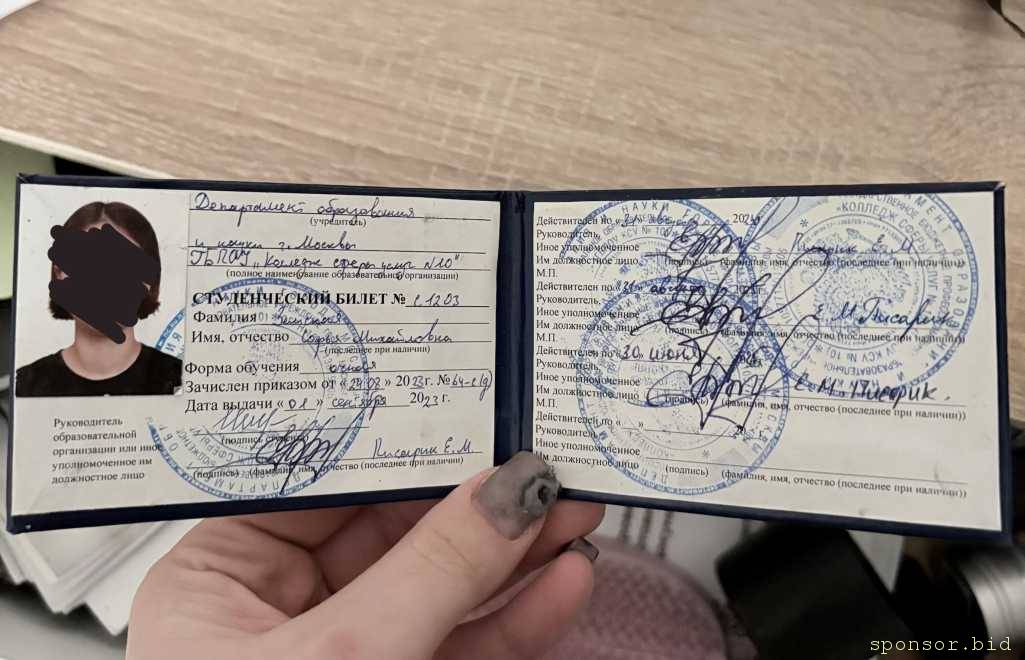 Департамент образования
(учредитель)
и науки г. Москвы
ГБПОУ "Колледж сферы услуг №10"
(полное наименование образовательной организации)
СТУДЕНЧЕСКИЙ БИЛЕТ № с 1203
Фамилия
Имя, отчество Михайловна
(последнее при наличии)
Форма обучения очная
Зачислен приказом от « » 2023г. №
Дата выдачи «01» сентября 2023 г.
Руководитель
образовательной
организации или иное
уполномоченное им
должностное лицо
(подпись студента)
Писарик Е.М.
(подпись) (фамилия, имя, отчество (последнее при наличии)
Действителен по «31» августа 2024
Руководитель,
Иное уполномоченное Писарик Е.М.
Им должностное лицо (подпись) (фамилия, имя, отчество (последнее при наличии))
М.П.
Действителен по «31» августа
Руководитель,
Иное уполномоченное Е.М. Писарик
Им должностное лицо (подпись) (фамилия, имя, отчество (последнее при наличии))
М.П.
Действителен по «30» июня
Руководитель,
Иное уполномоченное Е.М. Писарик.
Им должностное лицо (подпись) (фамилия, имя, отчество (последнее при наличии))
М.П.
Действителен по « »
Руководитель,
Иное уполномоченное
Им должностное лицо (подпись) (фамилия, имя, отчество (последнее при наличии))
sponsor.bid